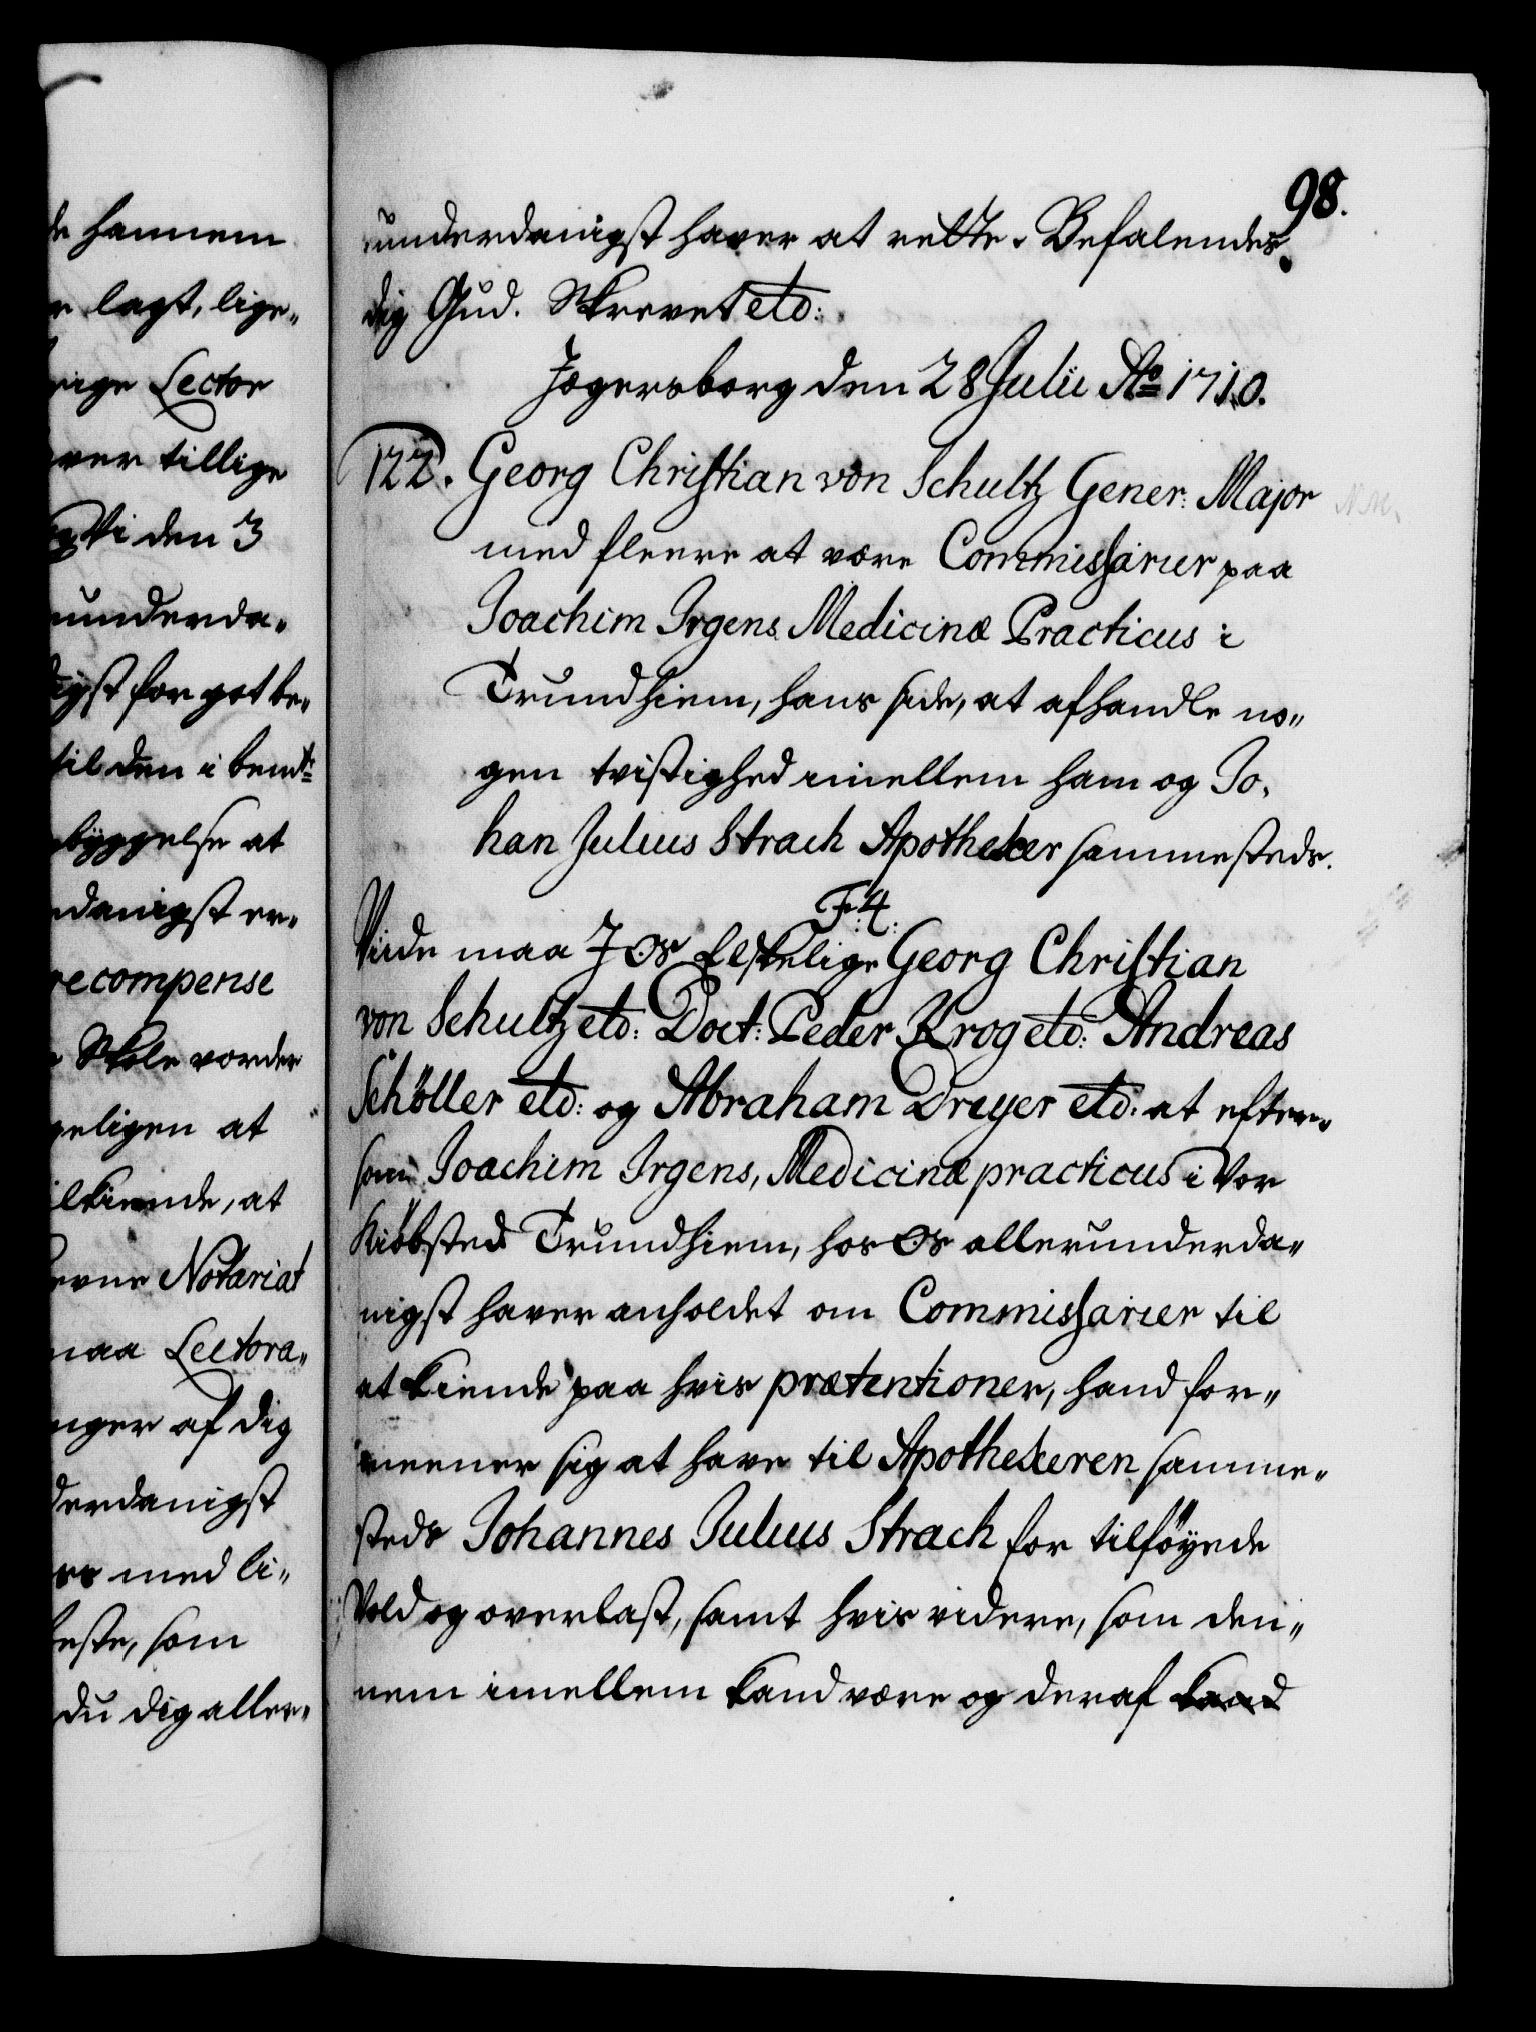 98.
underdanigst haver at rette. Befalendes
dig Gud. Skrevet etc:
Jægersborg den 28 Julii Ao 1710.
122. Georg Christian von Schultz Gener: Major
med fleere at være Commissarier paa
Joachim Irgens Medicinæ Practicus i
Trundhiem, hans side, at afhandle no„
gen tvistighed imellem ham og Jo„
han Julius Strach Apotheker sammesteds.
F: 4.
Viide maa I Os Elskelige Georg Christian
von Schultz etc: Doct: Peder Krog etc: Andreas
Schöller etc: og Abraham Dreyer etc: at efter„
som Joachim Irgens, Medicinæ practicus i Vor
Kiöbsted Trundhiem, hos Os allerunderda„
nigst haver anholdet om Commissarier til
at kiende paa hvis prætentioner, hand for„
meener sig at have til Apothekeren samme„
steds Johannes Julius Strach for tilföyede
Vold og overlast, samt hvis videre, som den„
nem imellem kand være og deraf kand
de hannem
lagt, lige„
Lector
tillige
Vi den 3
underda„
for got be„
til den i bemte
byggelse at
danigst er„
recompense
Skole vorder
geligen at
kiende, at
Notariat
maa Lectora„
af dig
derdanigst
med li„
som
du dig aller„